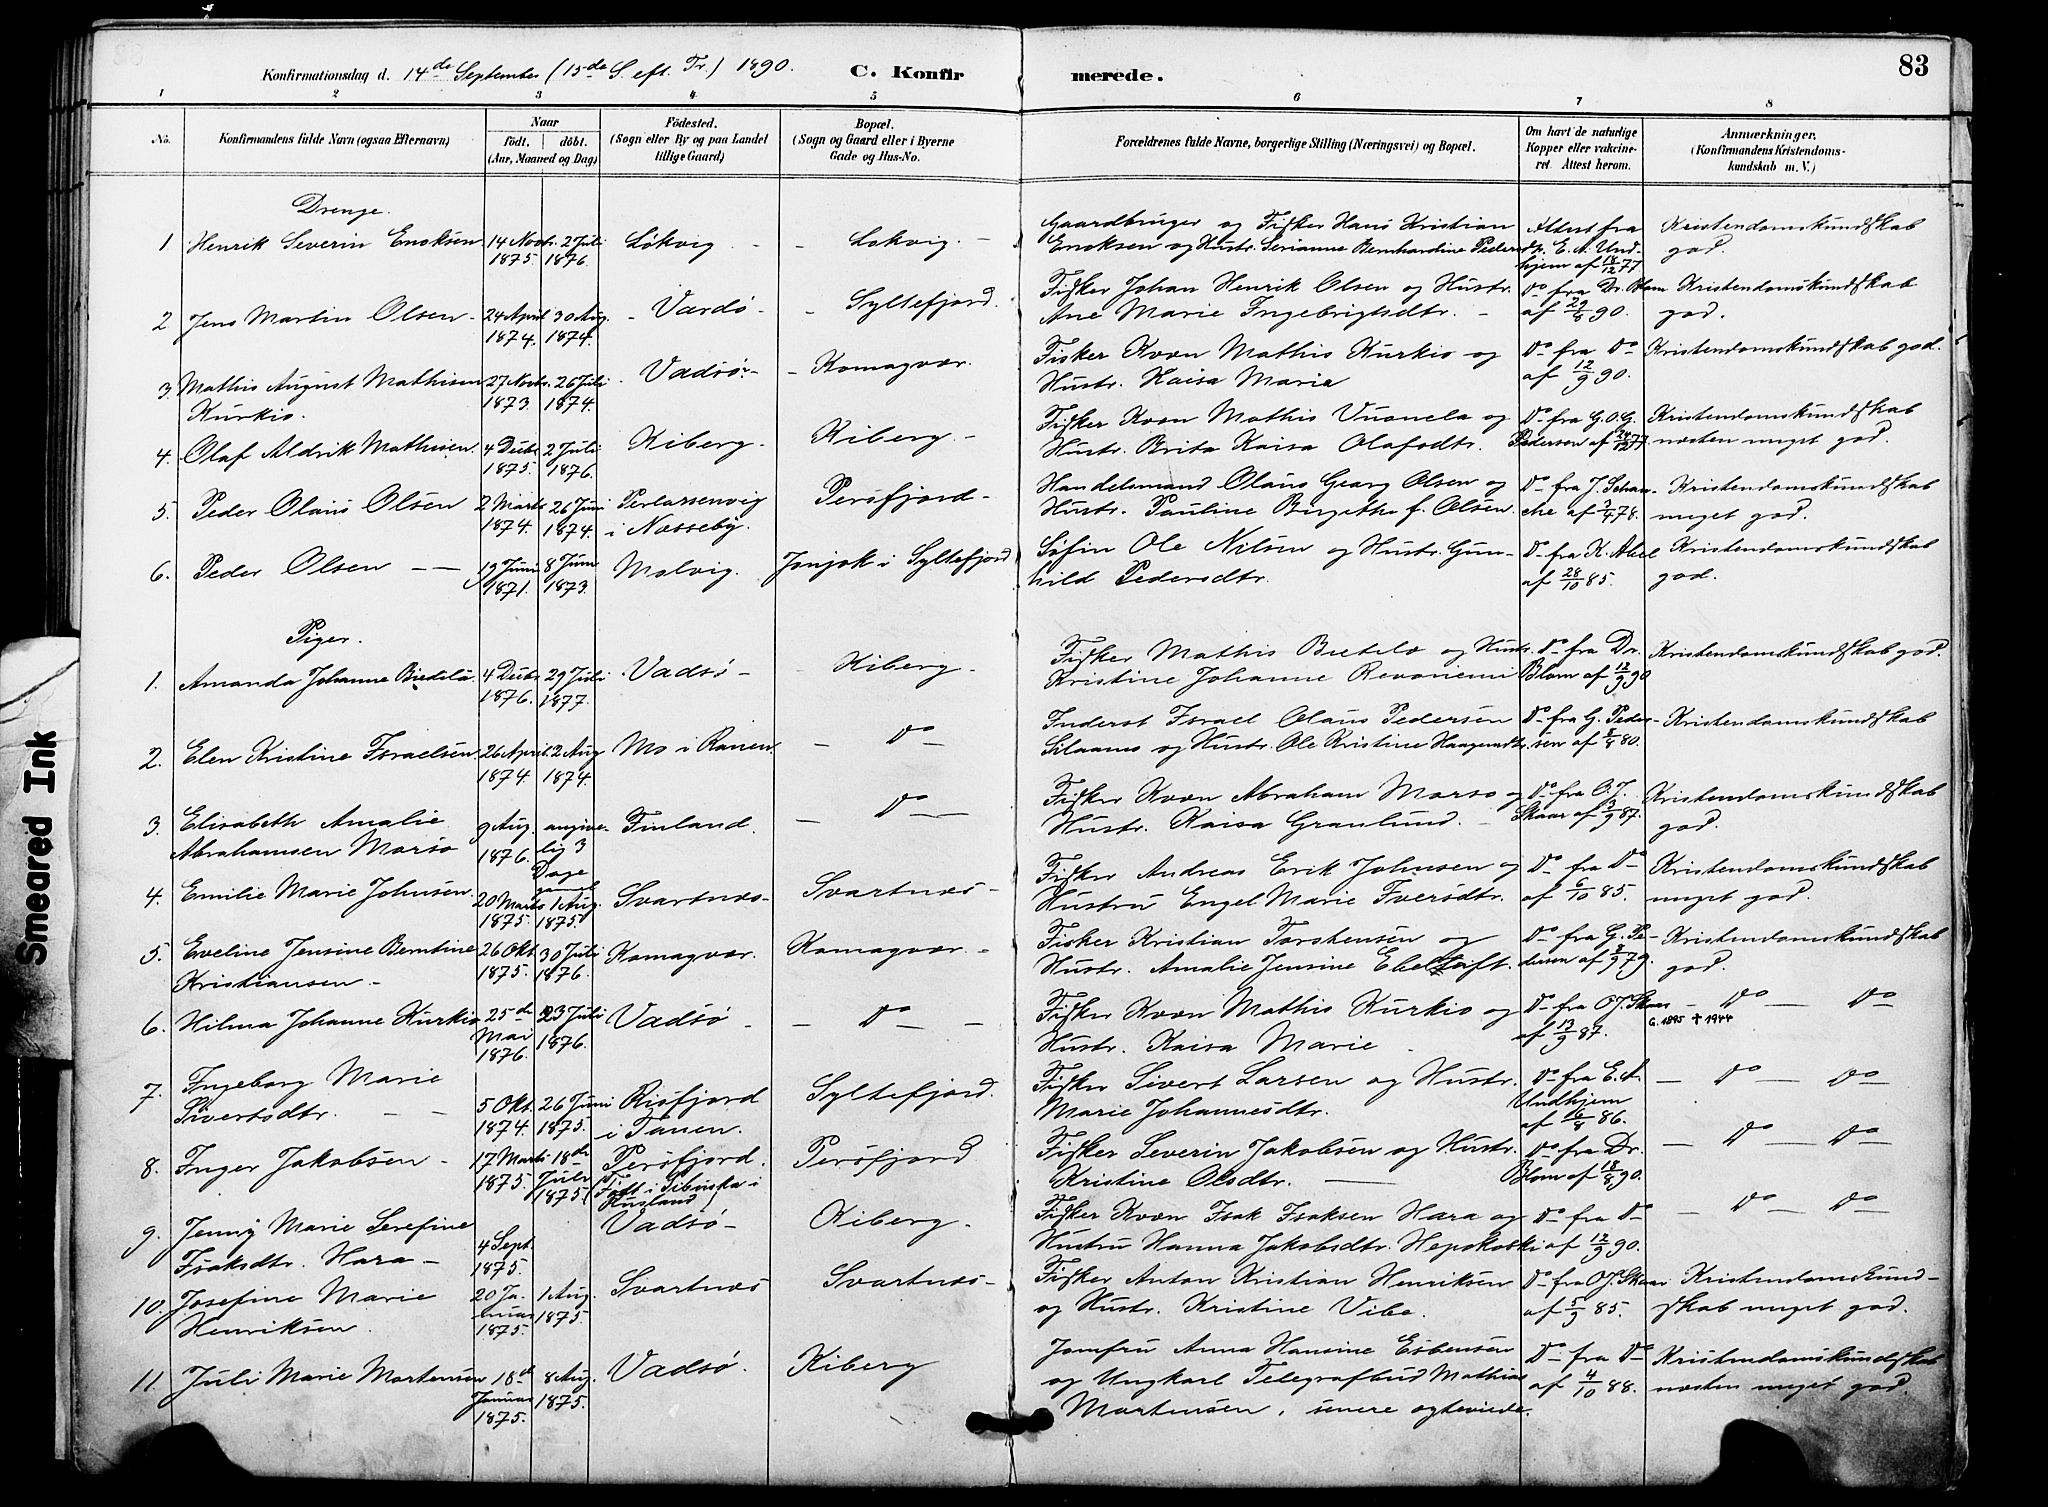 Konfirmationsdag d. 14de September (15de S. eft. Tr.) 1890. C. Konfirmerede. 83
1 2 3 4 5 6 7 8
No. Konfirmandens fulde Navn (ogsaa Efternavn) Naar födt. döbt. (Aar, Maaned og Dag) Födested. (Sogn eller By og paa Landet tillige Gaard) Bopæl. (Sogn og Gaard eller i Byerne Gade og Hus-No. Forældrenes fulde Navne, borgerlige Stilling (Næringsvei) og Bopæl. Om havt de naturlige Kopper eller vakcineret. Attest herom. Anmærkninger. (Konfirmandens Kristendomskundskab m. V.)
Drenge.
1 Henrik Severin Enoksen 14 Novbr. 1875. 2 Juli 1876. Løkvig - Løkvig. - Gaardbruger og Fisker Hans Kristian Enoksen og Hustr. Serianne Bernhardine Peders Attest fra E. A. Undhjem af 18/12 77 Kristendomskundskab god.
2 Jens Martin Olsen - 24 April 1874. 30 Aug. 1874. - Vardø - - Syltefjord. Fisker Johan Henrik Olsen og Hustr. Ane Marie Ingebrigtsdtr. - Do fra Dr. Blom af 29/8 90. Kristendomskundskab god.
3. Mathis August Mathisen Kurkio. 27 Novbr. 1873. 26 Juli 1874. Vadsø - - Komagvær. Fisker Kvæn Mathis Kurkio og Hustr. Kaisa Maria Do fra Do af 12/9 90. Kristendomskundskab god.
4. Olaf Aldrik Mathisen. 4 Decbr. 1875. 2 Juli 1876. Kiberg. Kiberg. - Fisker Kvæn Mathis Vuonela og Hustr. Brita Kaisa Olafsdtr. Do fra G. O. G. Pedersen af 24/12 77. Kristendomskundskab næsten meget god.
5. Peder Olaus Olsen 2 Marts 1874. 26 Juni 1874. Perlarsenvig i Næsseby. Persfjord - Handelsmand Olaus Georg Olsen og Hustr. Pauline Birgethe f. Olsen. Do fra J. Schanche af 3/4 78. Kristendomskundskab meget god.
6. Peder Olsen - - 19 Juni 1871. 8 Juni 1873. Molvig. Jonjok i Syltefjord Søfin Ole Nilsen og Hustr. Gunhild Pedersdtr. Do fra K. Abel af 28/10 85. Kristendomskundskab god.
Piger.
1. Amanda Johanne Biedelä. 4 Decbr. 1876. 29 Juli 1877. Vadsø - - Kiberg - Fisker Mathis Bietelæ og Hustr. Kristine Johanne Revoniemi Do fra Dr. Blom af 12/9 90 Kristendomskundskab god.
2. Elen Kristine Israelsen. 26 April 1874. 2 Aug 1874. Mo i Ranen. - Do - Inderst Israel Olaus Pedersen Silaamo og Hustr. Ole Kristine Haagensdtr. Do fra G. Pedersen af 2/8 80. - Kristendomskundskab
3. Elisabeth Amalie Abrahamsen Marso 9 Aug. 1876. angivelig 3 Dage gamel Finland. - Do - Fisker Kvæn Abraham Marso og Hustr. Kaisa Granlund. - Do fra O. J. Skaar af 3/9 87. Kristendomskundskab god.
4. Emilie Marie Johnsen. 20 Marts 1875. 1 Aug. 1875. Svartnæs - Svartnæs - Fisker Andreas Erik Johnsen og Hustru Engel Marie Iversdtr. Do fra Do af 6/10 85. Kristendomskundskab meget god.
5. Eveline Jensine Berntine Kristiansen - 26 Okt. 1875. 30 Juli 1876. Komagvær. Komagvær. - Fisker Kristian Torstensen og Hustr. Amalie Jensine Ebeltoft. Do fra G. Pedersen af 3/9 79. Kristendomskundskab god.
6. Hilma Johanne Kurkio 25de Mai 1876. 23 Juli 1876. Vadsø - - Do - - Fisker Kvæn Mathis Kurkio og Hustr. Kaisa Marie Do fra O J. Skaar af 13/9 87. G. 1895 † 1944 - Do - Do
7. Ingeborg Marie Sivertsdtr. - - 5 Okt. 1874. 26 Juni 1875. Risfjord i Tanen. Syltefjord. Fisker Sivert Larsen og Hustr. Marie Johannesdtr. Do fra E. A. Undhjem af 6/8 86. - Do - Do
8. Inger Jakobsen - 17 Marts 1875. 18de Juli 1875. Persfjord. Persfjord Fisker Severin Jakobsen og Hustr. Kristine Olsdtr. - Do fra Dr. Blom af 18/8 90. - Do - Do
9. Jenny Marie Serefine Isaksdtr. Hara - 4 Sept. 1875. (Født i Rusland Vadsø - Kiberg - Fisker Kvæn Isak Isaksen Hara og Hustru Hanna Jakobsdtr. Hepokoski Do fra Do af 12/9 90. - Do - Do
10. Josefine Marie Henriksen. 20 Januar 1875. 1 Aug. 1875. Svartnæs Svartnæs - Fisker Anton Kristian Henriksen og Hustr. Kristine Vibe. Do fra O J. Skaar af 5/9 85. Kristendomskundskab meget god.
11. Juli Marie Mortensen 18de Januar 1875. 8 Aug. 1875. Vadsø. Kiberg Jomfru Anna Hansine Esbensen og Ungkarl Telegrafbud Mathias Mortensen, senere egteviede. Do fra Do af 4/10 88. Kristendomskundskab næsten meget god.
Smeared Ink